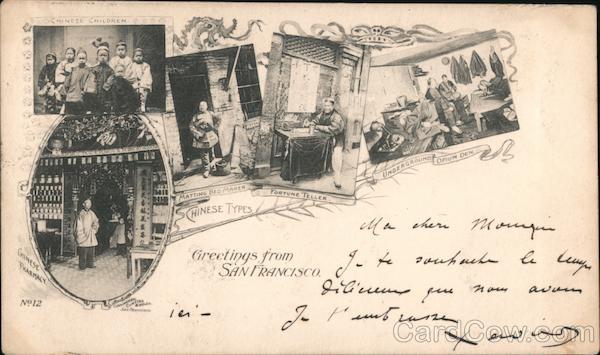 CHINESE CHILDREN
MATTING BED MAKER
FORTUNE TELLER
UNDERGROUND OPIUM DEN
CHINESE TYPES
CHINESE PHARMACY
Greetings from
SAN FRANCISCO.
Nº 12
SAN FRANCISCO
Ma chère
Je te souhaite le temps
délicieux que nous avons
ici -
Je t'embrasse
CardCow.com